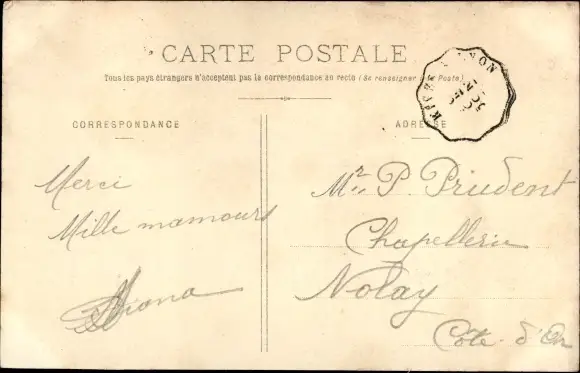 CARTE POSTALE
Tous les pays étrangers n'acceptent pas la correspondance au recto (Se renseigner à la Poste)
CORRESPONDANCE
ADRESSE
Merci
Mille mamours
Mr P. Prudent
Chapellerie
Nolay
Côte d'Or